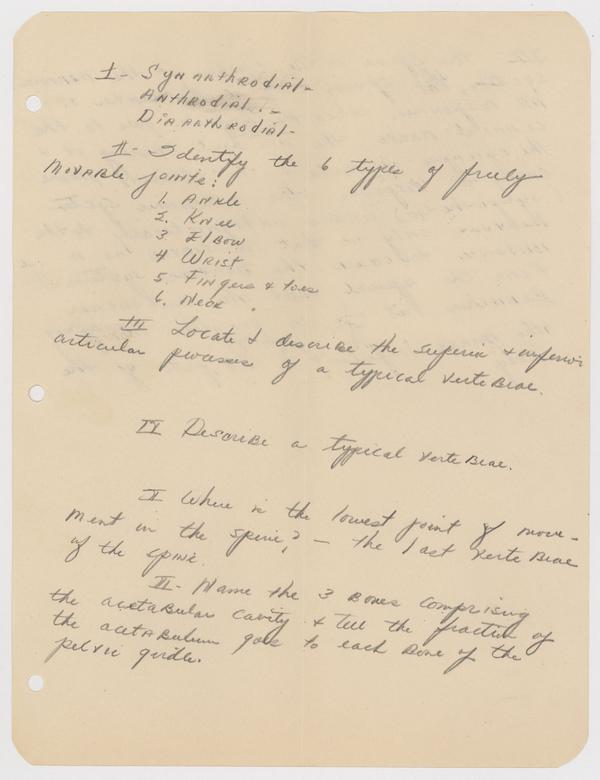 I - Synanthrodial -
Anthrodial. -
Diaanthrodial -
II - Identify the 6 types of freely
movable joints:
1. Ankle
2. Knee
3 Elbow
4 Wrist
5. Fingers & toes
6. Neck
III Locate & describe the superior & inferior
articular processes of a typical vertebrae.
IV Describe a typical vertebrae.
V Where is the lowest point of move-
ment in the spine? - the last vertebrae
of the spine.
VI - Name the 3 bones comprising
the acetabular cavity & tell the fraction of
the acetabulum goes to each bone of the
pelvic girdle.